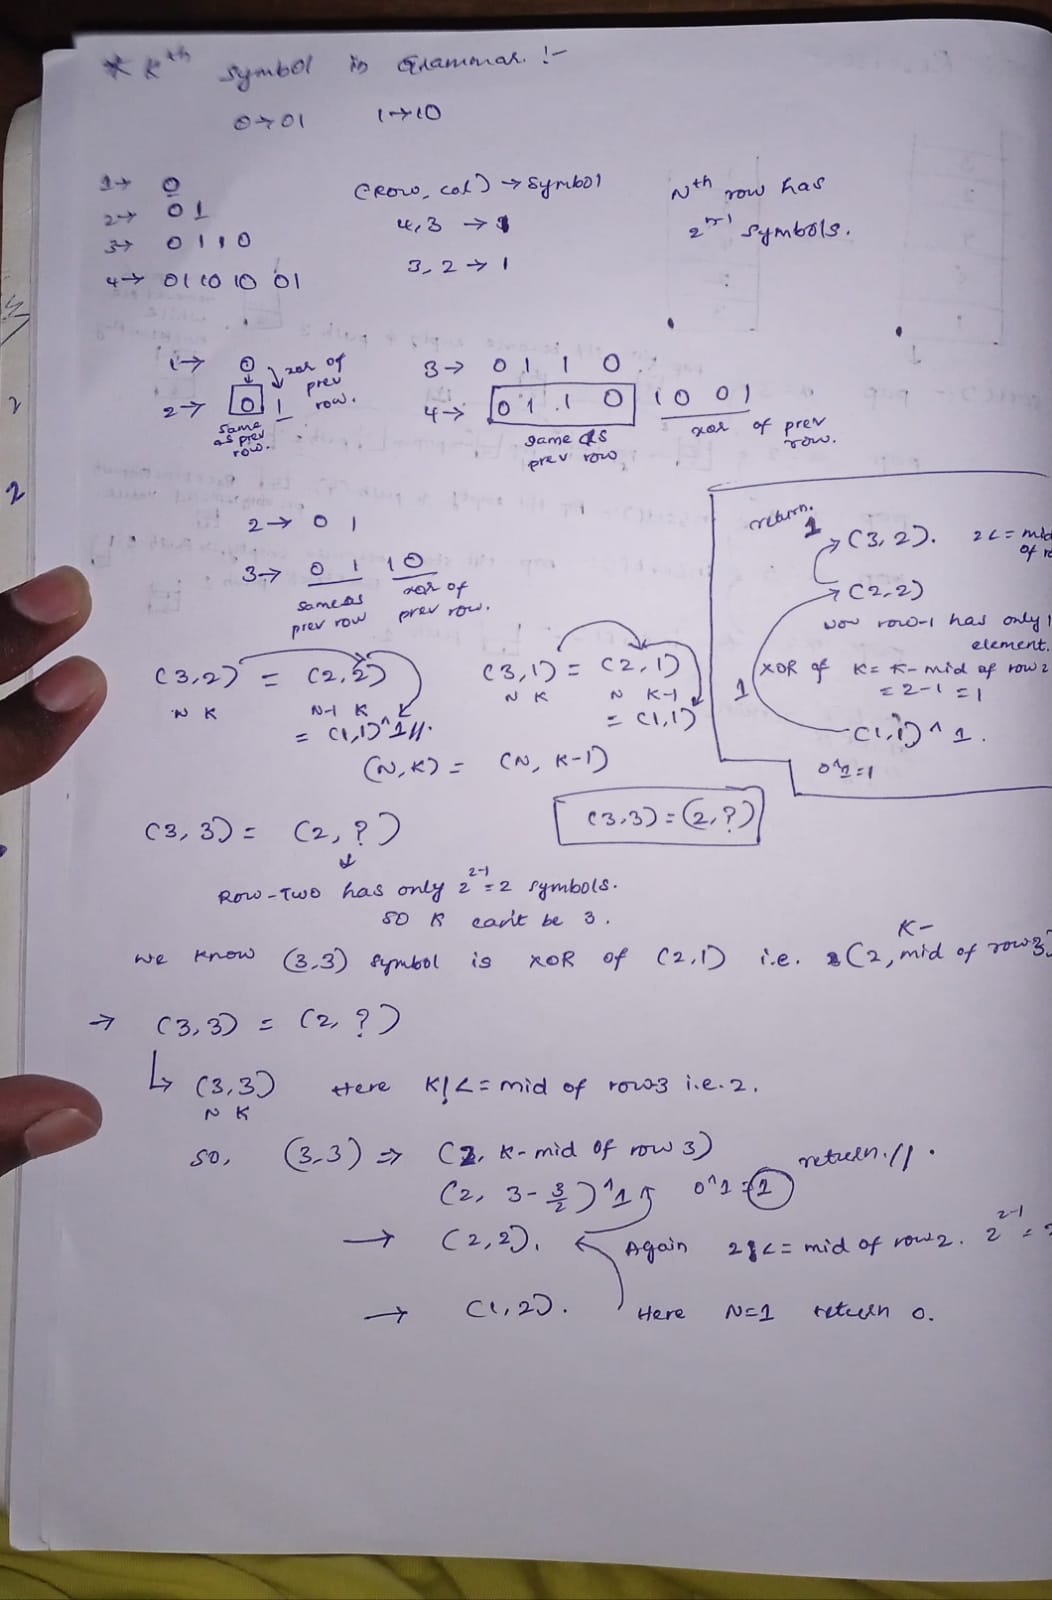 * Kth symbol in Grammar :-
0→01 1→10
1→ 0
2→ 01
3→ 0110
4→ 01 10 10 01
(Row, col) → Symbol
4,3 → 1
3,2 → 1
Nth row has
2^n-1 symbols.
1→ 0
2→ 0 1
same as prev row.
xor of prev row.
3→ 0 1 1 0
4→ 0 1 1 0 1 0 0 1
same as prev row
xor of prev row.
2→ 0 1
3→ 0 1 10
same as prev row
xor of prev row.
return.
1 (3,2). 2<= mid
of
(2,2)
now row-1 has only 1
element.
XOR of K = K-mid of row 2
= 2-1 = 1
1
(1,1)^1.
0^1=1
(3,2) = (2,2)
N K N-1 K
= (1,1)^1//.
(3,1) = (2,1)
N K N K-1
= (1,1)
(N,K) = (N, K-1)
(3,3) = (2, ?)
(3,3) = (2,?)
Row-Two has only 2^2-1 = 2 symbols.
SO K can't be 3.
we know (3,3) symbol is XOR of (2,1) i.e. (2, K- mid of row 3)
→ (3,3) = (2, ?)
↳ (3,3) Here K!<= mid of row3 i.e. 2.
N K
SO, (3,3) ⇒ (2, K-mid of row 3)
(2, 3-3/2)^1 0^1 = 1 return.//.
→ (2,2). Again 2!<= mid of row2. 2^2-1 =
→ (1,2). Here N=1 return 0.
2
2